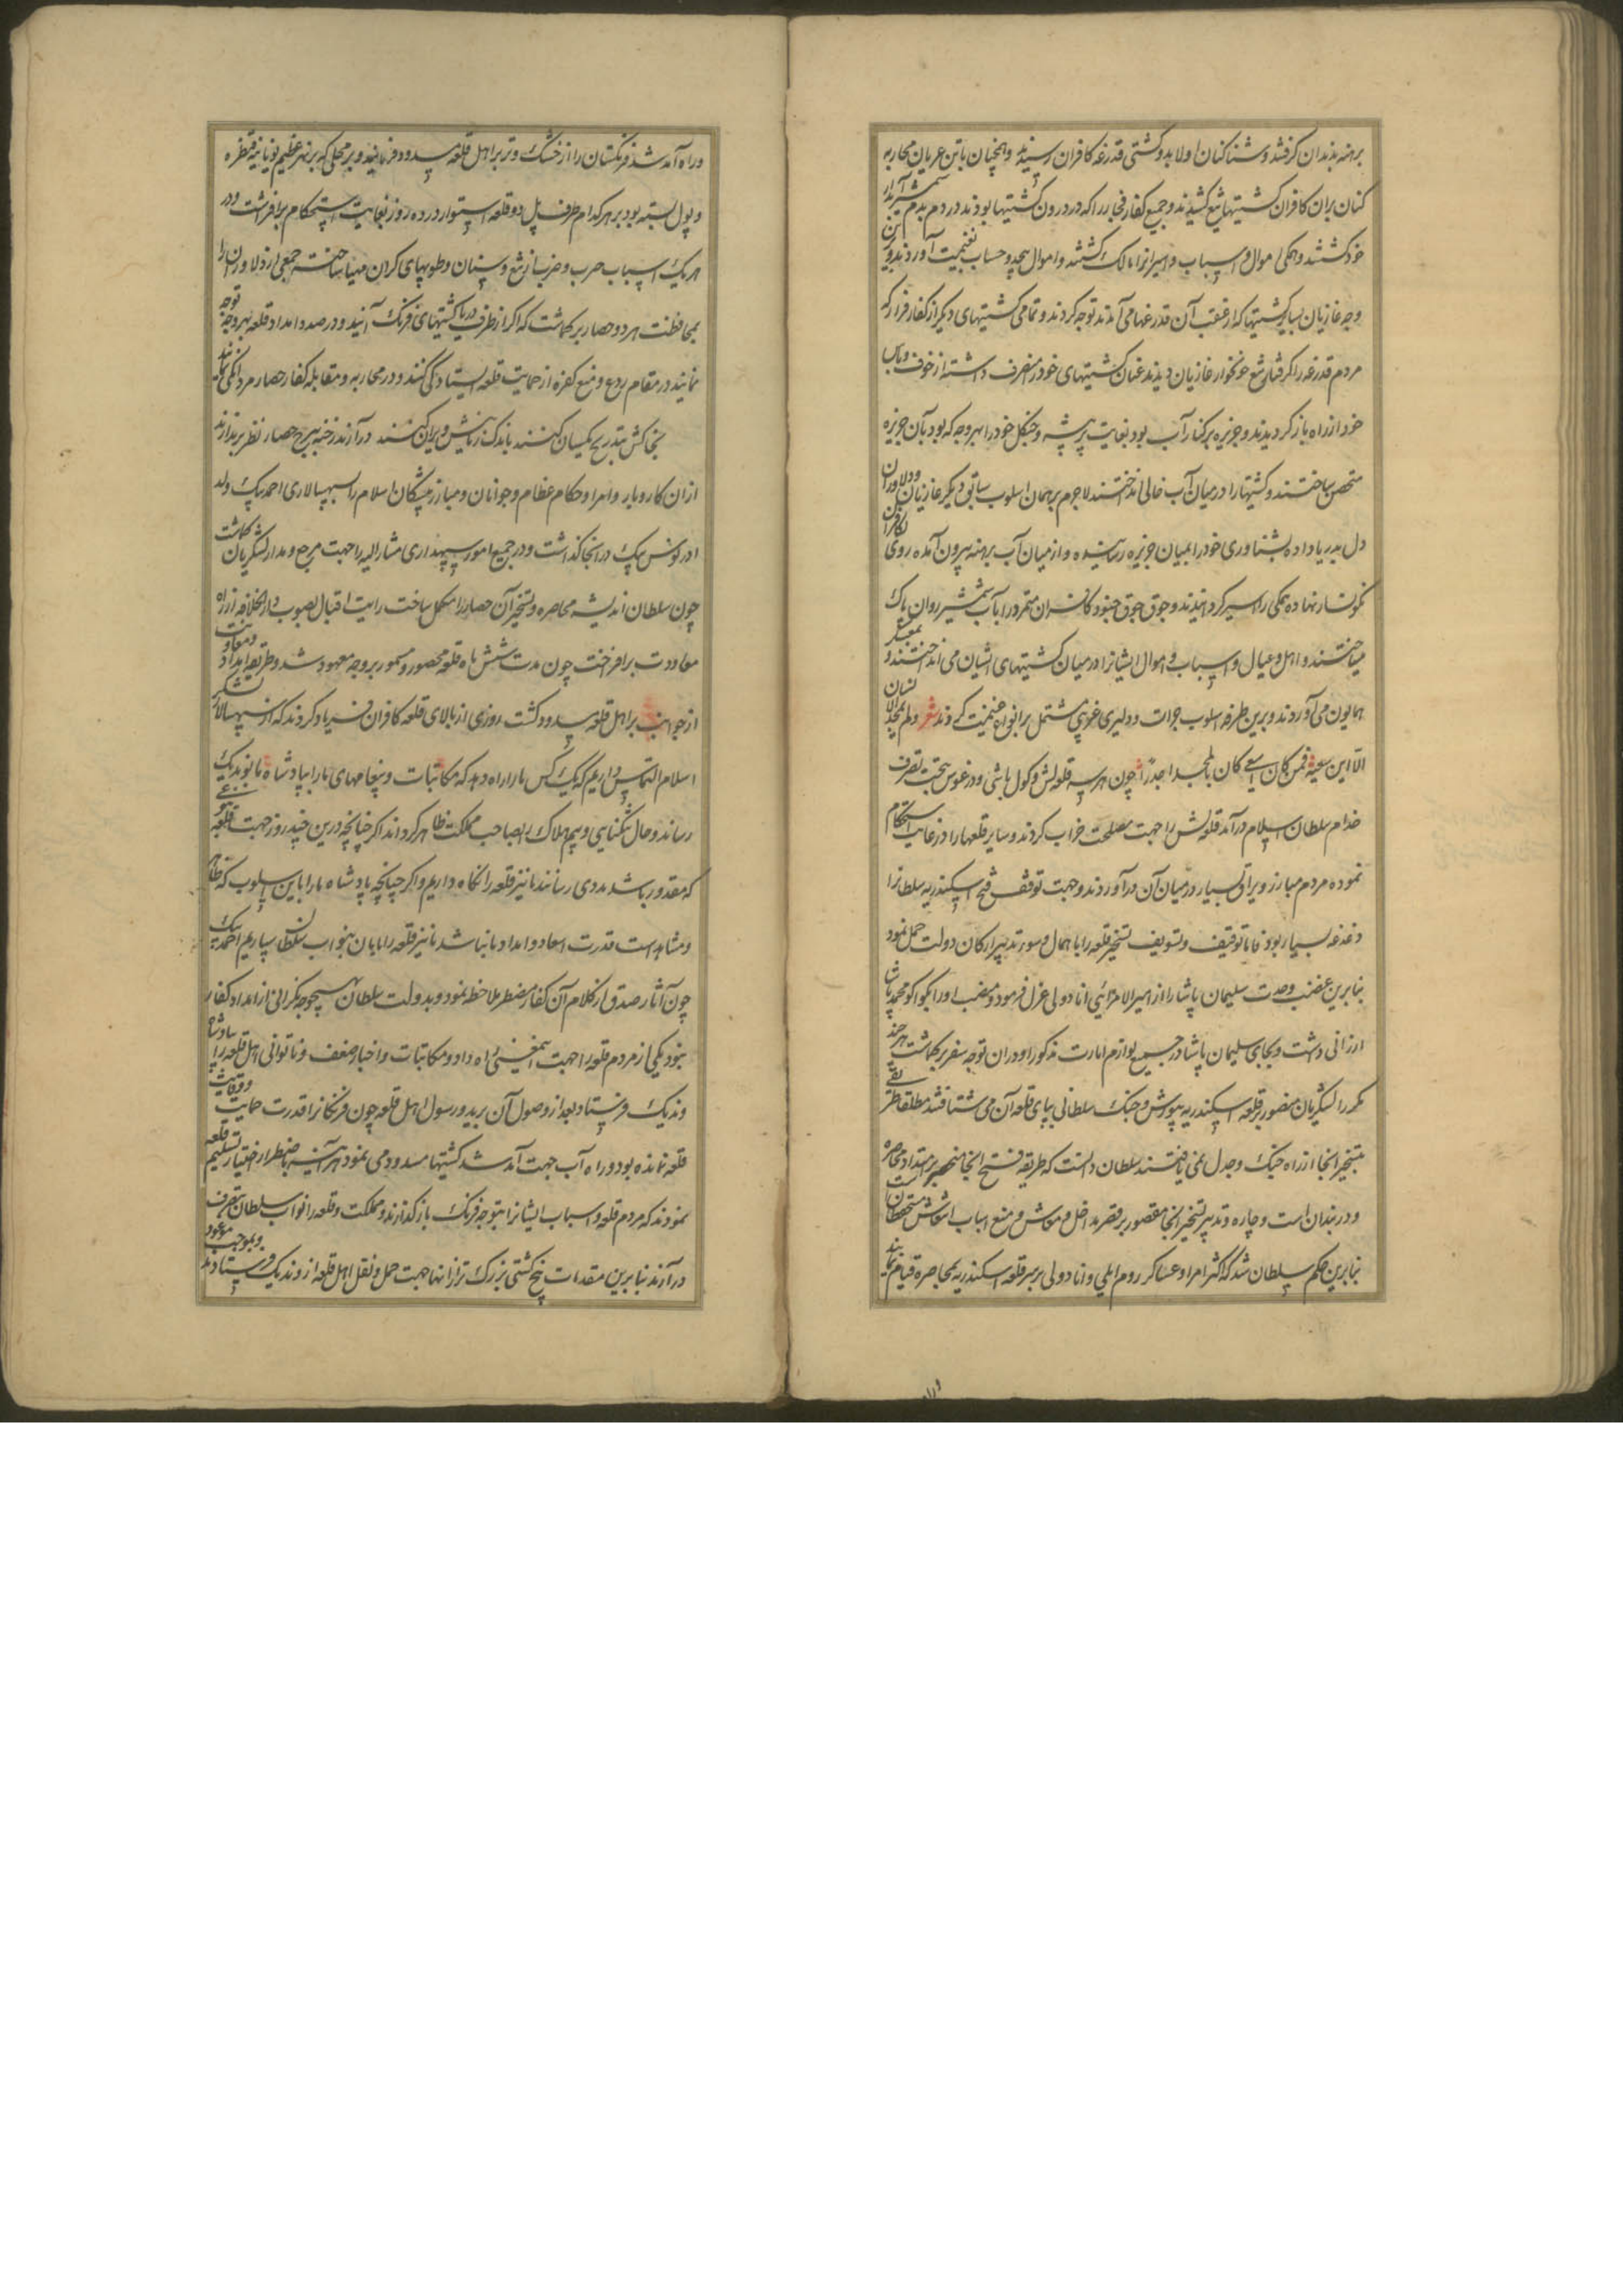 برهنه بدندان گرفتند و شناکنان اولا بدو کشتی قدرغه کافران رسیدند و همچنان باتن عریان محاربه
کنان بران کافران کشتیها تیغ کشیدند و جمیع کفار فجار را که در درون کشتیها بودند در دم بدم شمشیر آبدار
خود کشتند و همکی اموال و اسباب و اسیرانرا مالک کشتند و اموال بیحد و حساب بغنیمت آوردند
وجه غازیان بسایر کشتیها که از عقب آن قدرغها می آمدند توجه کردند و تمامی کشتیهای دیگر از کفار فرار که
مردم قدرغه را گرفتار تیغ خونخوار غازیان دیدند عنان کشتیهای خود را منحرف داشته از خوف
خود از راه باز کردیدند و جزیره بر کنار آب بود بغایت پر بیشه و جنکل خود را بهر وجه که بود بآن جزیره
متحصن ساختند و کشتیها را در میان آب خالی انداختند لاجرم بر همان اسلوب سابق دیگر غازیان و دلاوران
دل بدریا داده بشناوری خود را بمیان جزیره رسانیده و از میان آب برهنه بیرون آمده روی
نکونسار نهاده همکی را اسیر کردانیدند و جوق جوق جنود کافران متمرد را بآب شمشیر روان پاک
میساختند و اهل و عیال و اسباب و اموال ایشانرا در میان کشتیهای ایشان می انداختند و بمعسکر
همایون می آوردند و برین طرفه اسلوب جرات و دلیری غریبی مشتمل بر انواع غنیمت کردند شعر
الا این سعیه فمن کان یسعی کان بالمجد اجدرا چون هر سه قلعه لش و کول باشی و درغوس بتحت تصرف
خدام سلطان اسلام درآمد قلعه لش را جهت مصلحت خراب کردند و سایر قلعها را در غایت استحکام
نموده مردم مبارز و یراق بسیار در میان آن درآوردند و جهت توقف فتح اسکندریه سلطانرا
دغدغه بسیار بود فاما توقیف و تسویف تسخیر قلعه را باهمال و سوء تدبیر ارکان دولت حمل نمود
بنابرین غضب وحدت سلیمان پاشا را از امیرالامرائی اناد ولی عزل فرمود و منصب او را بکوکو محمد پاشا
ارزانی داشت و بجای سلیمان پاشا در جمیع لوازم امارت مذکور او دران توجه سفر بر کماشت هر چند
مکرر لشکریان منصور بر قلعه اسکندریه بیورش و جنک سلطانی بپای قلعه آن می شتافتند مطلقا
بتسخیر آنجا از راه جنک و جدل نمی یافتند سلطان دانست که طریقه فتح آنجا منحصر بر امتداد محاصره
و در بندان است و چاره و تدبیر تسخیر آنجا مقصور بر قصر مداخل و معاش و منع اسباب انتعاش مستحفظان
بنابرین حکم سلطان شد که اکثر امرا و عساکر روم ایلی و انا دولی بر سر قلعه اسکندریه بمحاصره قیام نمایند
و راه آمد شد فرنکستان را از خشک و تر بر اهل قلعه مسدود فرمایند و بر محلی که بر نهر عظیم بویانیه قنطره
و پول بسته بود بر هر کدام طرف پل دو قلعه استوار در ده روز بغایت استحکام برافراشت و در
هر یک اسباب حرب و ضرب از تیغ و سنان و طوبهای کران مهیا ساخته جمعی از دلاوران را
بمحافظت هر دو حصار بر کماشت که اکر از طرف دریا کشتیهای فرنک آیند و در صدد امداد قلعه بهر وجه توجه
نمایند در مقام ردع و منع کفره از حمایت قلعه ایستادکی کنند و در محاربه و مقابله کفار حصار مردانکی نمایند
بخاکش بتدریج یکسان کنند باندک زمانیش ویران کنند درآرند رخنه ببرج حصار نظر بر ندارند
از ان کار و بار و امرا و حکام عظام و جوانان و مبارز پیشکان اسلام را بسپهسالاری احمد بیک ولد
اورنوس بیک در آنجا گذاشت و در جمیع امور سپهداری مشارالیه را جهت مرجع و مدار لشکریان کماشت
چون سلطان اندیشه محاصره و تسخیر آن حصار را مکمل ساخت رایت اقبال بصوب دارالخلافه از راه
معاودت برافراخت چون مدت شش ماه قلعه محصور و مسمور بر وجه معهود شد و طریقه امداد و معاونت
از جوانب بر اهل قلعه مسدود کشت روزی از بالای قلعه کافران فریاد کردند که از سپهسالار لشکر
اسلام التماس داریم که یک کس ما را راه دهد که مکاتبات و پیغامهای ما را بپادشاه ما بوندیک
رساند و حال تنکنایی و بیم هلاک را بصاحب مملکت ظاهر کرداند اکر چنانچه درین چند روز جهت قلعه
که مقدور باشد مددی رسانند ما نیز قلعه را نکاه داریم و اکر چنانچه پادشاه ما را باین اسلوب که
و مشاهد است قدرت اسعاد و امداد ما نباشد ما نیز قلعه را بامان بنواب سلطان سپاریم احمد بیک
چون آثار صدق از کلام آن کفار مضطر ملاحظه نمود و بدولت سلطان بهیچوجه نکرانی از امداد کفار
نبود یکی از مردم قلعه را جهت این معنی راه داد و مکاتبات و اخبار ضعف و ناتوانی اهل قلعه را بپادشاه
وندیک فرستاد بعد از وصول آن برید و رسول اهل قلعه چون فرنکانرا قدرت حمایت و وقایت
قلعه نمانده بود و راه آب جهت آمد شد کشتیها مسدود می نمود هر آینه باضطرار اختیار تسلیم قلعه
نمودند که مردم قلعه و اسباب ایشانرا بتوجه فرنک باز گذارند و مملکت و قلعه را نواب سلطان بتصرف
درآرند بنابرین مقدمات پنج کشتی بزرک ترازانها جهت حمل و نقل اهل قلعه از وندیک فرستادند و بموجب موعود